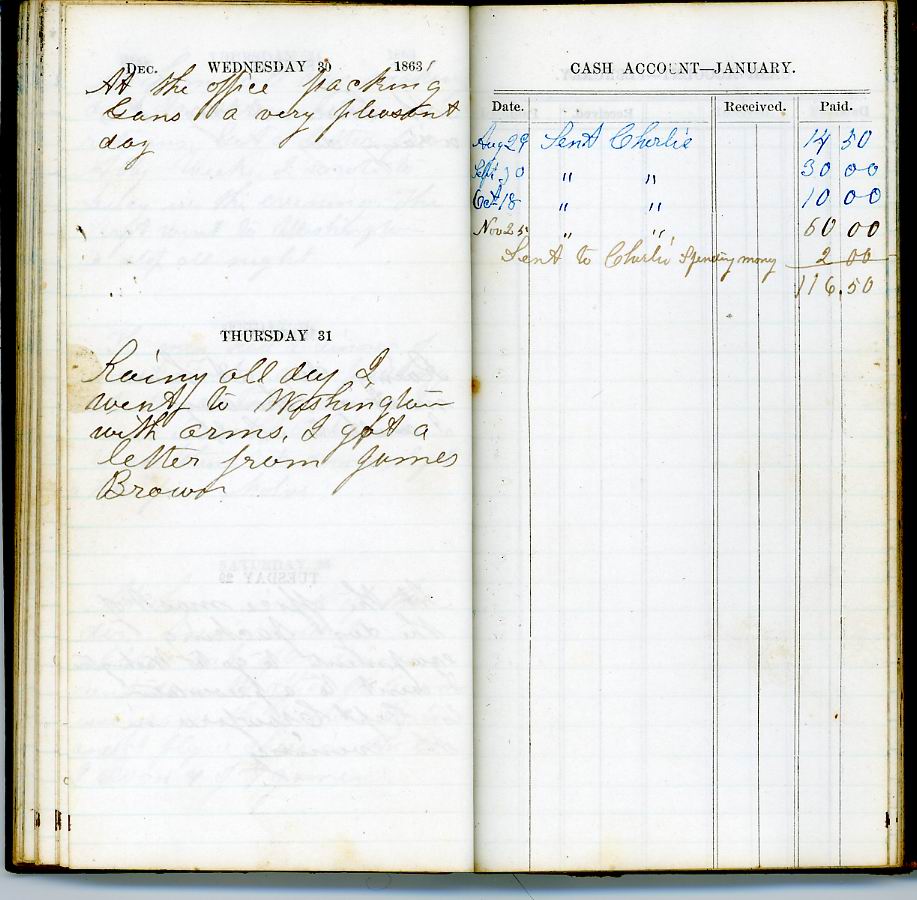 DEC. WEDNESDAY 30 1863
At the office packing
Guns a very pleasant
day
THURSDAY 31
Rainy all day I
went to Washington
with arms. I got a
letter from James
Brown
CASH ACCOUNT—JANUARY.
Date. Received. Paid.
Aug 29 Sent Charlie 14 50
Sept. 30 " " 30 00
Oct 18 " " 10 00
Nov 25 " " 60 00
Sent to Charlie Spending mony 2 00
116.50
TUESDAY 29